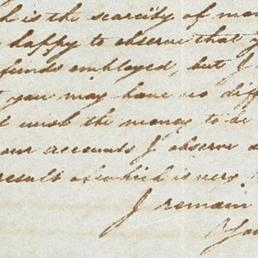 is the scarcity of
happy to observe that
funds employed, but I
you may have no diff
wish the money to be
our accounts I observe
result of which is very
I remain